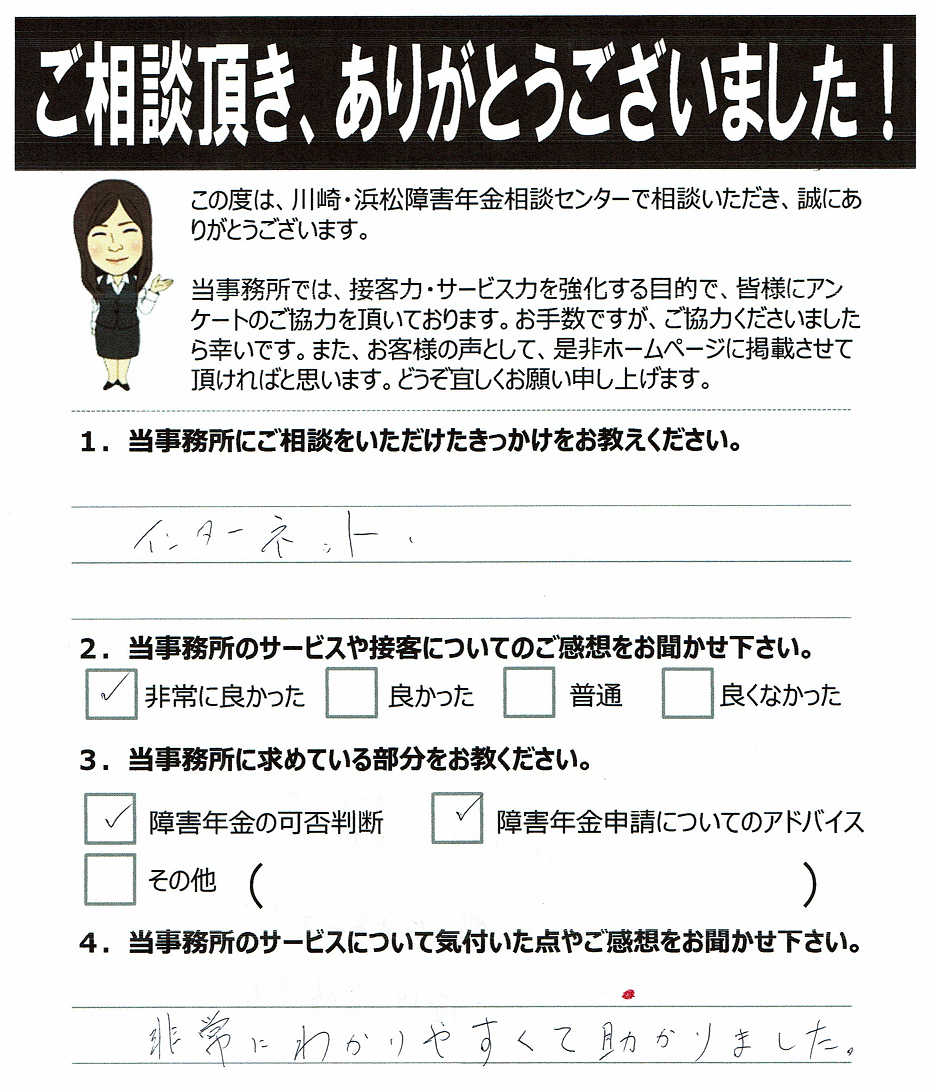 ご相談頂き、ありがとうございました！
この度は、川崎・浜松障害年金相談センターで相談いただき、誠にあ
りがとうございます。
当事務所では、接客力・サービス力を強化する目的で、皆様にアン
ケートのご協力を頂いております。お手数ですが、ご協力くださいました
ら幸いです。また、お客様の声として、是非ホームページに掲載させて
頂ければと思います。どうぞ宜しくお願い申し上げます。
１．当事務所にご相談をいただけたきっかけをお教えください。
インターネット、
２．当事務所のサービスや接客についてのご感想をお聞かせ下さい。
✓ 非常に良かった 良かった 普通 良くなかった
３．当事務所に求めている部分をお教ください。
✓ 障害年金の可否判断 ✓ 障害年金申請についてのアドバイス
その他 （ ）
４．当事務所のサービスについて気付いた点やご感想をお聞かせ下さい。
非常にわかりやすくて助かりました。